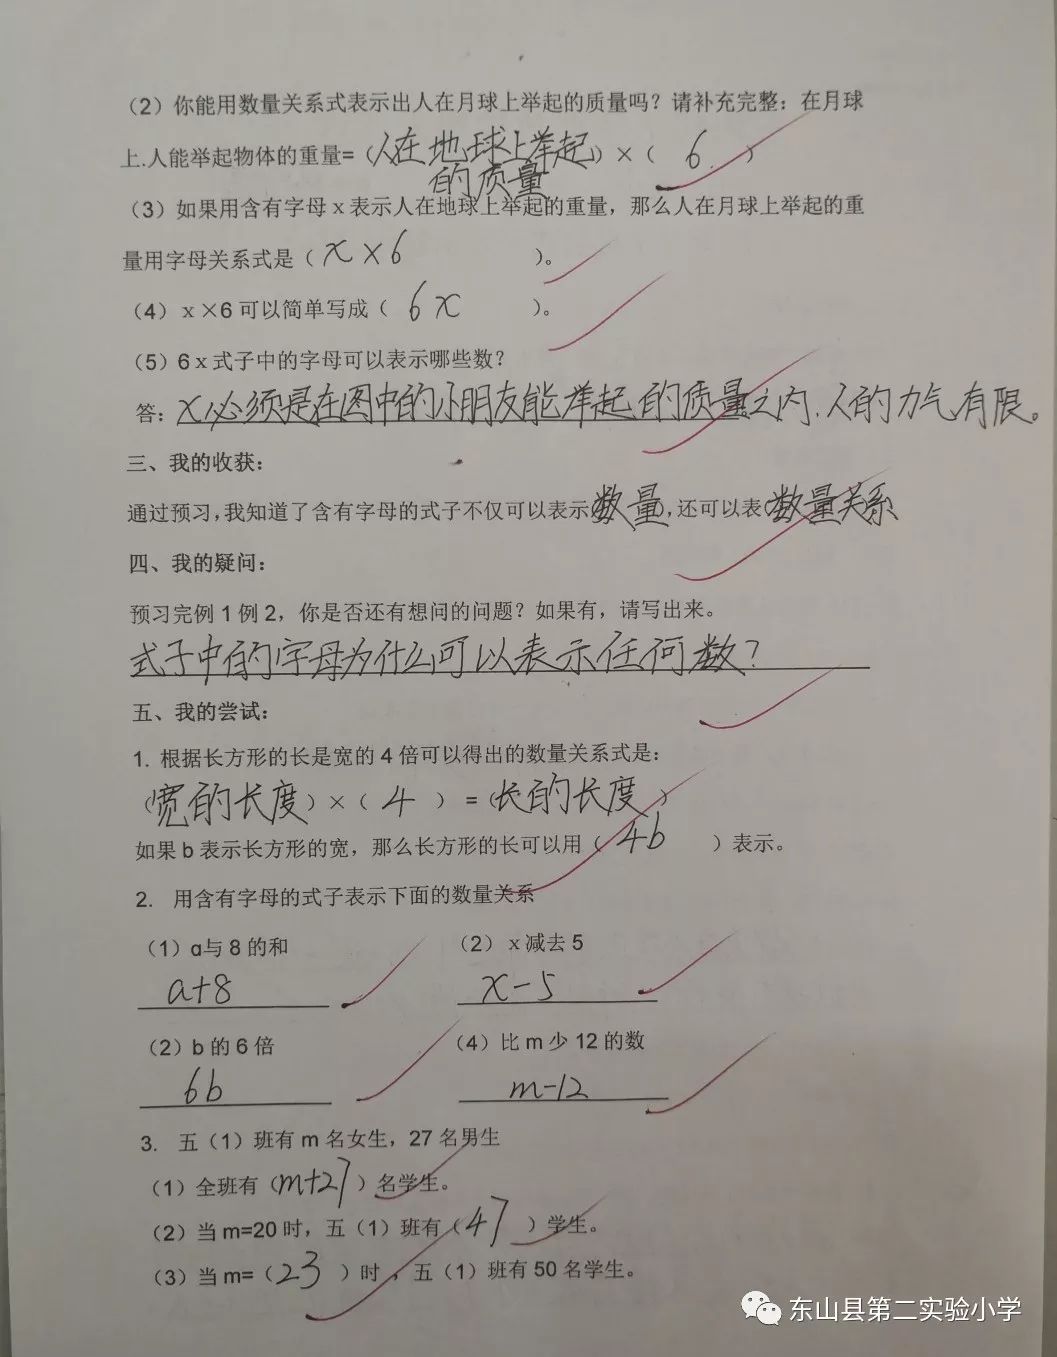 （2）你能用数量关系式表示出人在月球上举起的质量吗？请补充完整：在月球
上.人能举起物体的重量=（人在地球上举起）×（ 6 ）
的质量
（3）如果用含有字母x表示人在地球上举起的重量，那么人在月球上举起的重
量用字母关系式是（ x×6 ）。
（4）x×6可以简单写成（ 6x ）。
（5）6x式子中的字母可以表示哪些数？
答：x必须是在图中的小朋友能举起的质量之内.人的力气有限。
三、我的收获：
通过预习，我知道了含有字母的式子不仅可以表示(数量)，还可以表(数量关系
四、我的疑问：
预习完例1例2，你是否还有想问的问题？如果有，请写出来。
式子中的字母为什么可以表示任何数？
五、我的尝试：
1. 根据长方形的长是宽的4倍可以得出的数量关系式是：
（宽的长度）×（ 4 ）=（长的长度）
如果b表示长方形的宽，那么长方形的长可以用（ 4b ）表示。
2. 用含有字母的式子表示下面的数量关系
（1）a与8的和 （2）x减去5
a+8 x-5
（2）b的6倍 （4）比m少12的数
6b m-12
3. 五（1）班有m名女生，27名男生
（1）全班有（m+27）名学生。
（2）当m=20时，五（1）班有（47）学生。
（3）当m=（23）时，五（1）班有50名学生。
东山县第二实验小学